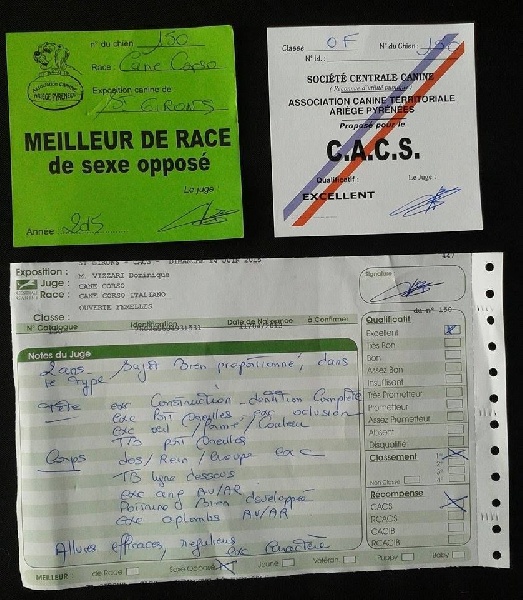 n° du chien 150
Race: Cane Corso
Exposition canine de
St GIRONS
MEILLEUR DE RACE
de sexe opposé
Le juge
Année: 2015
Classe: OF
N° du Chien: 150
N° Id.:
SOCIÉTÉ CENTRALE CANINE
(Reconnue d'utilité publique)
ASSOCIATION CANINE TERRITORIALE
ARIÈGE PYRÉNÉES
Proposé pour le
C.A.C.S.
Qualificatif:
Le Juge:
EXCELLENT
ST GIRONS - CACS - DIMANCHE 14 JUIN 2015
Exposition :
Juge : M. VIZZARI Dominique
Race : CANE CORSO
CANE CORSO ITALIANO
Classe : OUVERTE FEMELLES
Signature
N° Catalogue Identification Date de Naissance à Confirmer
de n° 150
Notes du Juge
2 ans Sujet Bien proportionné, dans
le type
Tête exc Construction - dentition Complète
exc Port Oreilles, exc occlusion
exc oeil / forme / Couleur
TB port Oreilles
Corps dos / Rein / Croupe exc
TB ligne dessous
exc ang AV/AR
Poitrine Bien developpé
exc aplombs AV/AR
Allures efficaces, régulières
exc Caractère
Qualificatif
Excellent
Très Bon
Bon
Assez Bon
Insuffisant
Très Prometteur
Prometteur
Assez Prometteur
Absent
Disqualifié
Classement
Non Classé
Récompense
CACS
RCACS
CACIB
RCACIB
MEILLEUR de Race Sexe Opposé Jeune Vétéran Puppy Baby